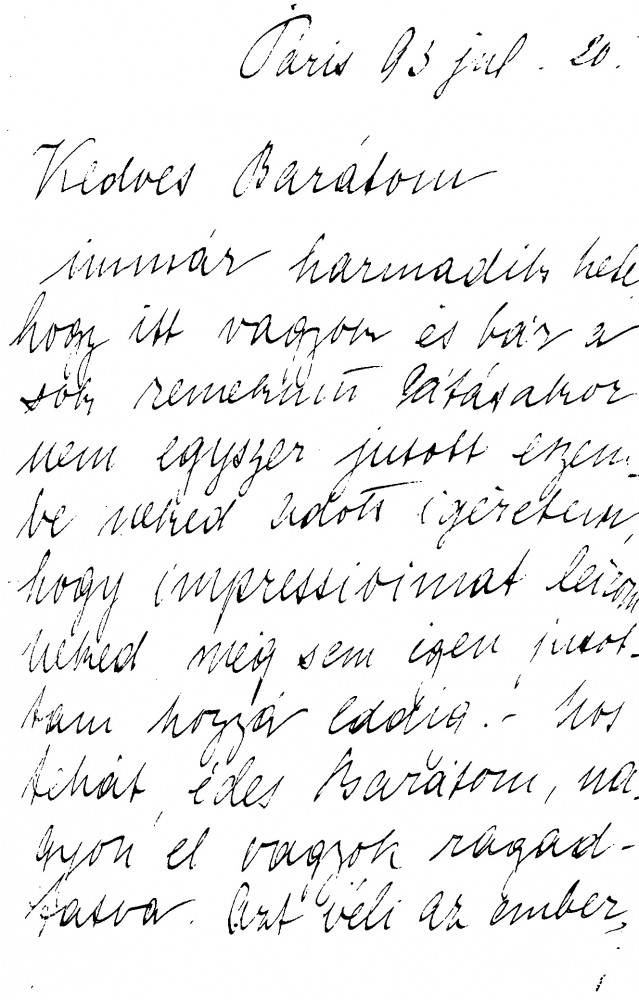 Páris 93 jul. 20.
Kedves Barátom
immár harmadik hete,
hogy itt vagyok és bár a
sok remekmű látásakor
nem egyszer jutott eszem-
be neked adott igéretem,
hogy impressioimat leirom
neked még sem igen jutot-
tam hozzá eddig. - Nos
tehát, édes Barátom, na-
gyon el vagyok ragad-
tatva. Azt véli az ember,